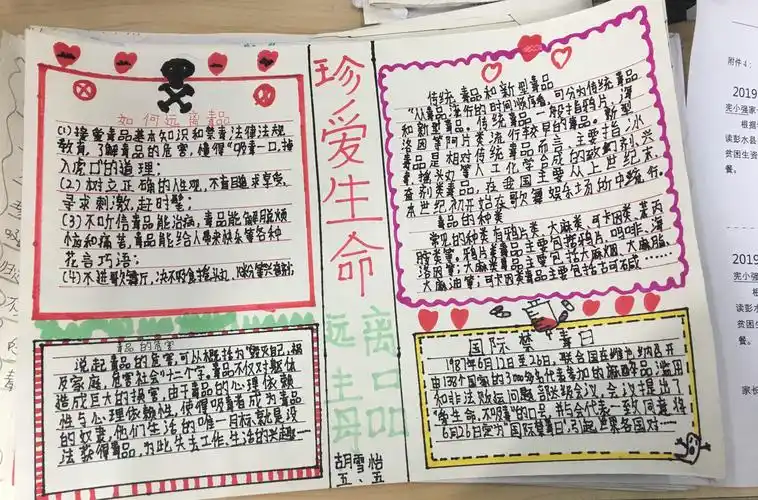 如何远离毒品
(1)接受毒品基本知识和禁毒法律法规
教育,了解毒品的危害,懂得"吸毒一口,掉
入虎口"的道理;
(2)树立正确的人生观,不盲目追求享受,
寻求刺激,赶时髦;
(3)不听信毒品能治病,毒品能解脱烦
恼和痛苦,毒品能给人带来快乐等各种
花言巧语;
(4)不进歌舞厅,决不吸食摇头丸、
毒品的危害
说起毒品的危害,可以概括为"毁灭自己,祸
及家庭,危害社会"十二个字,毒品不仅对躯体
造成巨大的损害,由于毒品的心理依赖
性与心理依赖性,使得吸毒者成为毒品
的奴隶,他们生活的唯一目标就是设
法获得毒品,为此失去工作、生活的兴趣…
珍爱生命
远离
胡雪怡
五、五
传统毒品和新型毒品
"从毒品流行的时间顺序看,可分为传统毒品
和新型毒品。传统毒品一般指鸦片、海
洛因等阿片类流行较早的毒品。新型
毒品是相对传统毒品而言,主要指冰
毒、摇头丸等人工化学合成的致幻剂、兴
奋剂类毒品,在我国主要从上世纪末、
本世纪初开始在歌舞娱乐场所中流行。
毒品的种类
常见的种类有鸦片类、大麻类、可卡因类、苯丙
胺类等。鸦片类毒品主要包括鸦片、吗啡、海
洛因等;大麻类毒品主要包括大麻烟、大麻脂、
大麻油等;可卡因类毒品主要包括古柯碱……
国际禁毒日
1987年6月12日至26日,联合国在维也纳召开
由138个国家的3000多名代表参加的麻醉品滥用
和非法贩运问题部长级会议,会议提出了
"爱生命,不吸毒"的口号,并与会代表一致同意将
6月26日定为"国际禁毒日",引起世界各国对……
附件4:
2019
宪小强家
根据
读彭水县
贫困生资
餐。
2019
宪小强家
读彭水
贫困生
餐。
家长